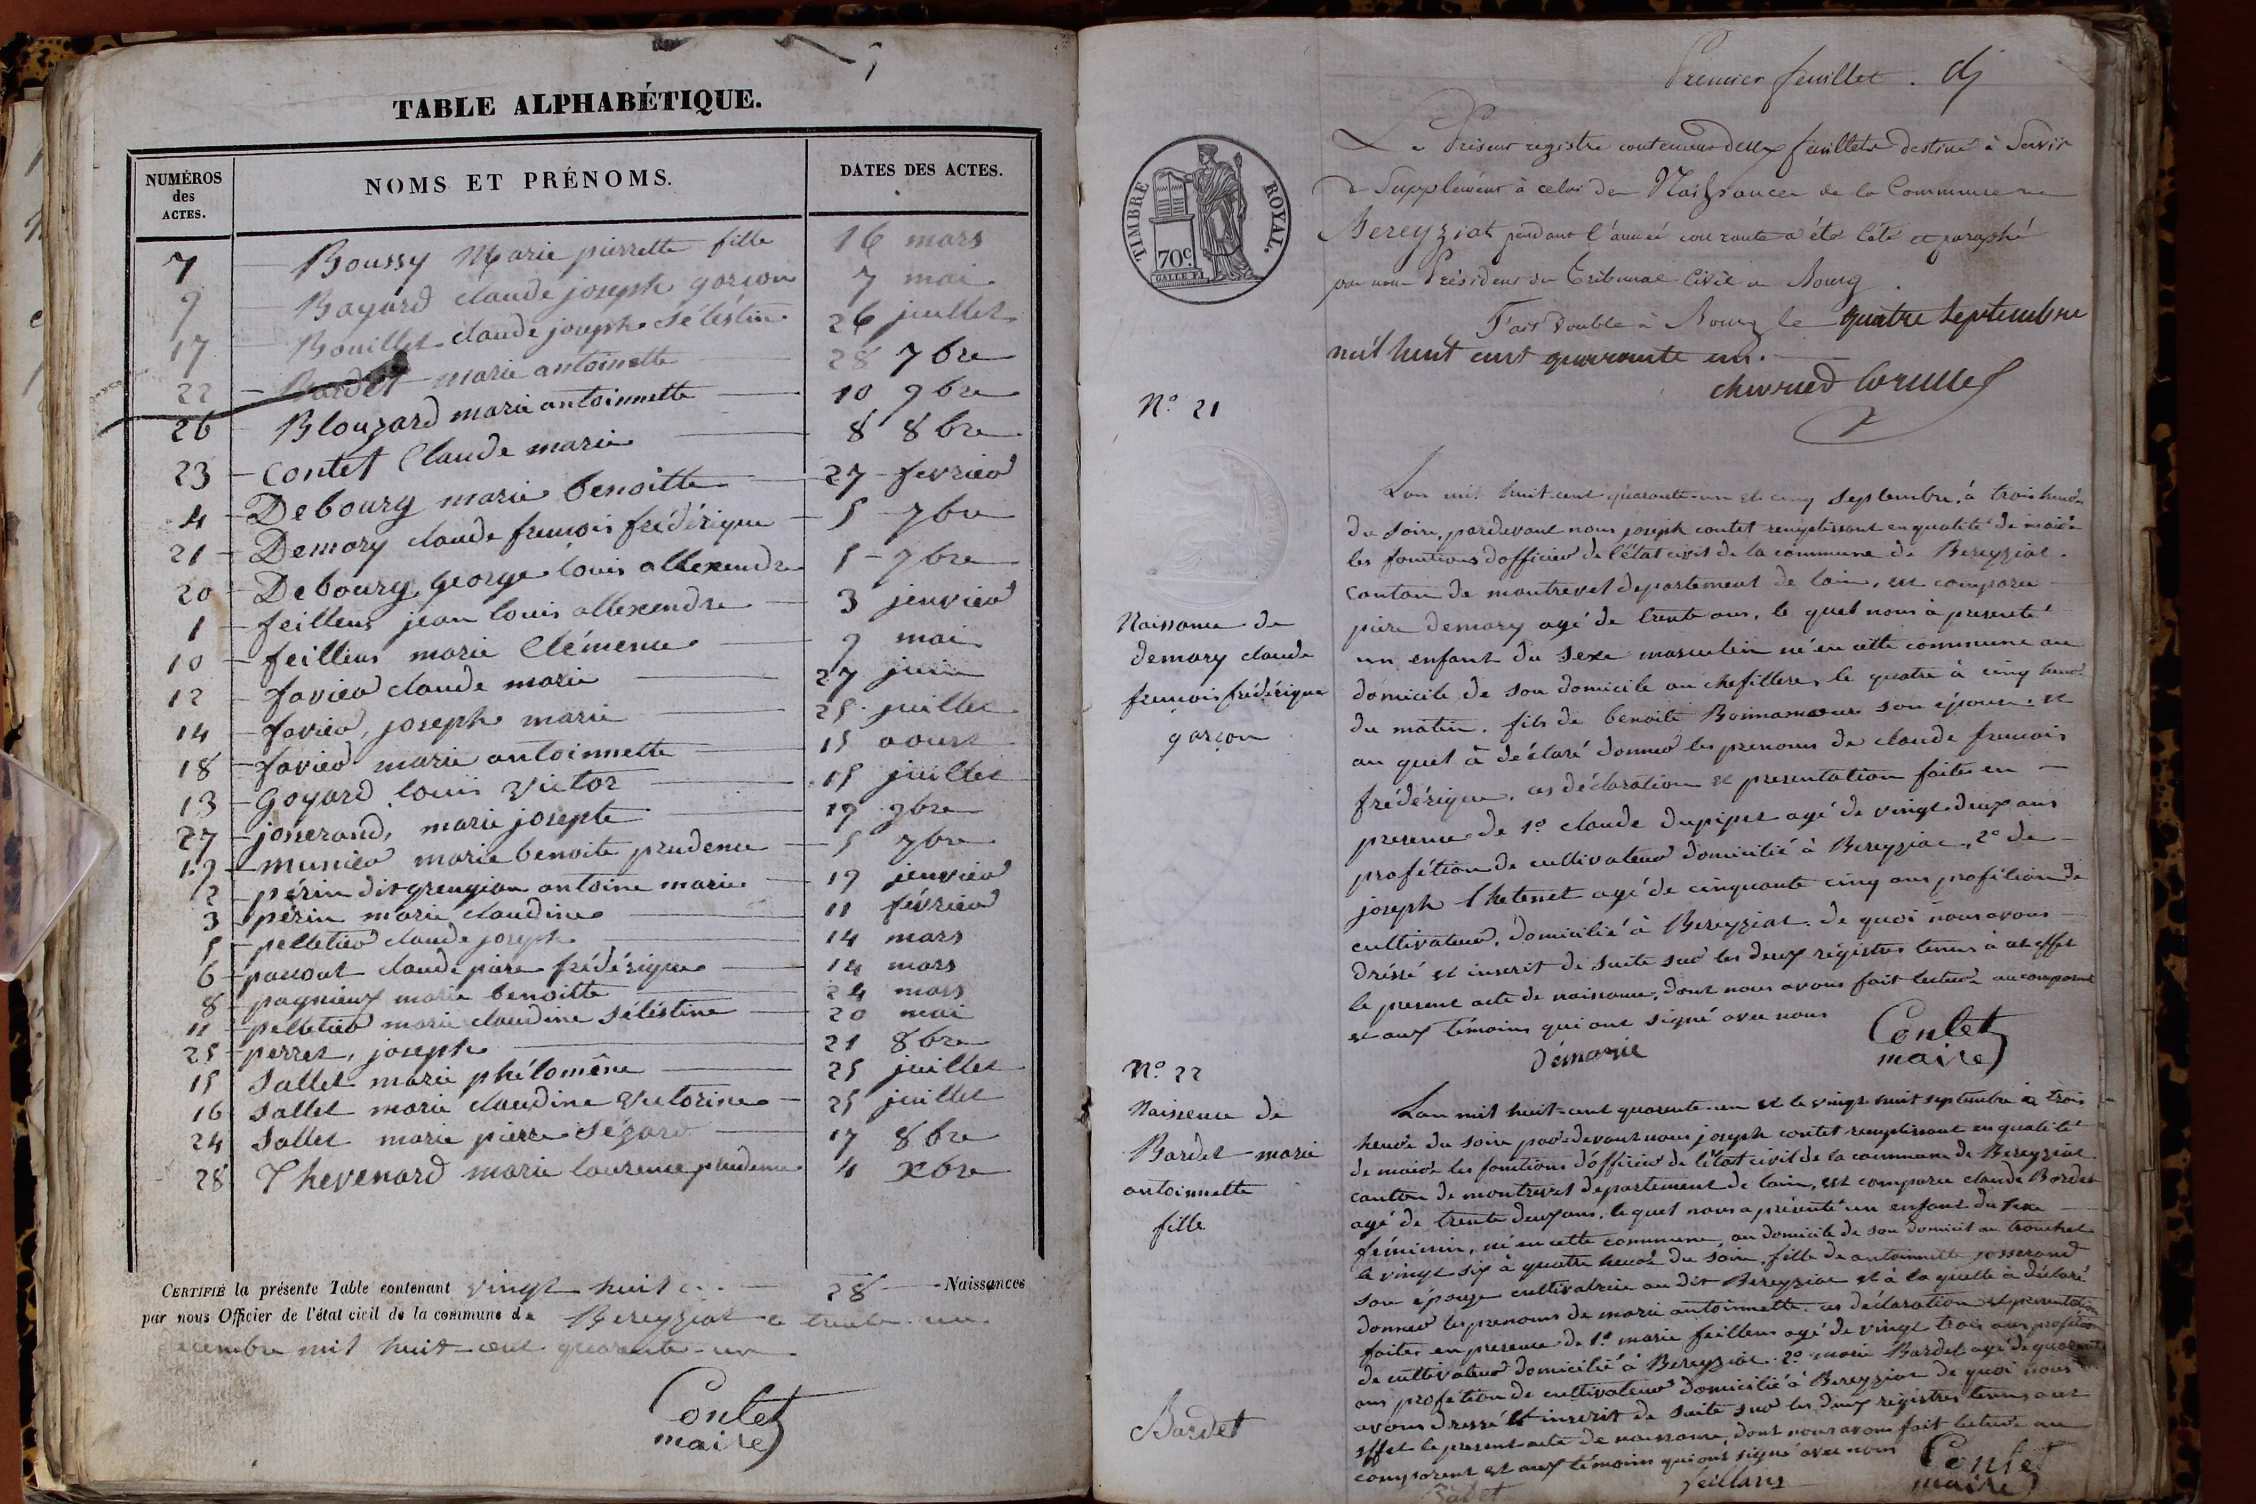 TABLE ALPHABÉTIQUE.
NUMÉROS des ACTES. NOMS ET PRÉNOMS. DATES DES ACTES.
7 Boussy Marie pierrette fille 16 mars
9 Bayard claude joseph garçon 7 mai
17 Bouillet claude joseph Séléstin 26 juillet
22 Bardet marie antoinette 28 7bre
26 Blouzard marie antoinnette 10 9bre
23 Contet Claude marie 8 8bre
4 Debourg marie benoitte 27 fevrier
21 Demary claude françois frédérique 5 7bre
20 Debourg george louis allexendre 5 7bre
1 feillens jean louis allexendre 3 jenvier
10 feillens marie Clémence 9 mai
12 favier claude marie 27 juin
14 favier, joseph marie 25 juillet
18 favier marie antoinnette 15 aoust
13 Goyard louis Victor 15 juillet
27 josserand, marie josepte 19 9bre
19 munier marie benoite prudence 5 7bre
2 périn dit grengion antoine marie 19 jenvier
3 périn marie claudine 11 février
5 pelletier claude joseph 14 mars
6 pauvat claude piere frédérique 14 mars
8 pagnieux marie benoitte 24 mars
11 pelletier marie claudine Séléstine 20 mai
25 perret, joseph 21 8bre
15 Sallet marie phélomêne 25 juillet
16 Sallet marie claudine Victorine 25 juillet
24 Sallet marie pierre Sézard 17 8bre
28 Thevenard marie laurence prudence 4 xbre
CERTIFIÉ la présente Table contenant vingt huit 28 Naissances
par nous Officier de l'état civil de la commune de Bereyziat ce trente-un
décembre mil huit-cent quarante-un
Contet
maire
Premier feuillet.
TIMBRE ROYAL.
70c
Le Présent registre contenant deux feuillets destiné à Servir
de Supplément à celui des Naissances de la Commune de
Bereyziat pendant l'année courante a été côté et paraphé
par nous Président du Tribunal Civil de Bourg
Fait double à Bourg le quatre Septembre
mil huit cent quarante un.
N° 21
Naissance de
demary claude
françois frédérique
garçon
Lan mil huit-cent quarante-un et cinq septembre, à trois heure
du soire, pardevant nous joseph contet remplissant en qualité de maire
les fonctions dofficier de l'état civil de la commune de Bereyziat
Canton de montrevel departement de lain, est comparu
piere demary agé de trente ans, le quel nous à presenté
un enfant du sexe masculin né en cette commune au
domicile de son domicile au chefillere, le quatre à cinq heure
du matin. fils de benoite Bonnamour son épouse. et
au quel à déclaré donner les prenoms de claude françois
frédérique. ces déclaration et presentation faites en
presence de 1° claude dupupet agé de vingt-deux ans
profétion de cultivateur domicilié à Bereyziat, 2° de
joseph Chetenet agé de cinquante cinq ans profétion de
cultivateur, domicilié à Bereyziat. de quoi nous avons
dréssé et inscrit de suite sur les deux régistres tenus à cet effet
le present acte de naissance, dont nous avons fait lecture au comparent
et aux témoins qui ont signé avec nous
démarie Contet
maire
N° 22
Naissence de
Bardet marie
antoinnette
fille
Bardet
Lan mil huit-cent quarente-un et le vingt-huit septembre à trois
heure du soire par-devant nous joseph contet remplissant en qualité
de maire les fonctions dofficier de létat civil de la commune de Bereyziat
canton de montrevel departement de lain, est comparu claude Bardet
agé de trente deux ans, le quel nous a présenté un enfant du sexe
féminin, né en cette commune, au domicile de son domicil au trouchet
le vingt-six à quatre heure du soire, fille de antoinnette josserand
son épouze cultivatrice au dit Bereyziat et à la quelle à déclaré
donner les prenoms de marie antoinnette. ces déclaration et presentation
faites en presence de 1° marie feillens agé de vingt trois ans profétion
de cultivateur domicilié à Bereyziat. 2° marie Bardet agé de quarante
ans profétion de cultivateur domicilié à Bereyziat de quoi nous
avons dressé et inscrit de suite sur les deux régistres tenus a cet
effet le present acte de naissance, dont nous avons fait lecture au
comparent et aux témoins qui ont signé avec nous
feillans Contet
maire